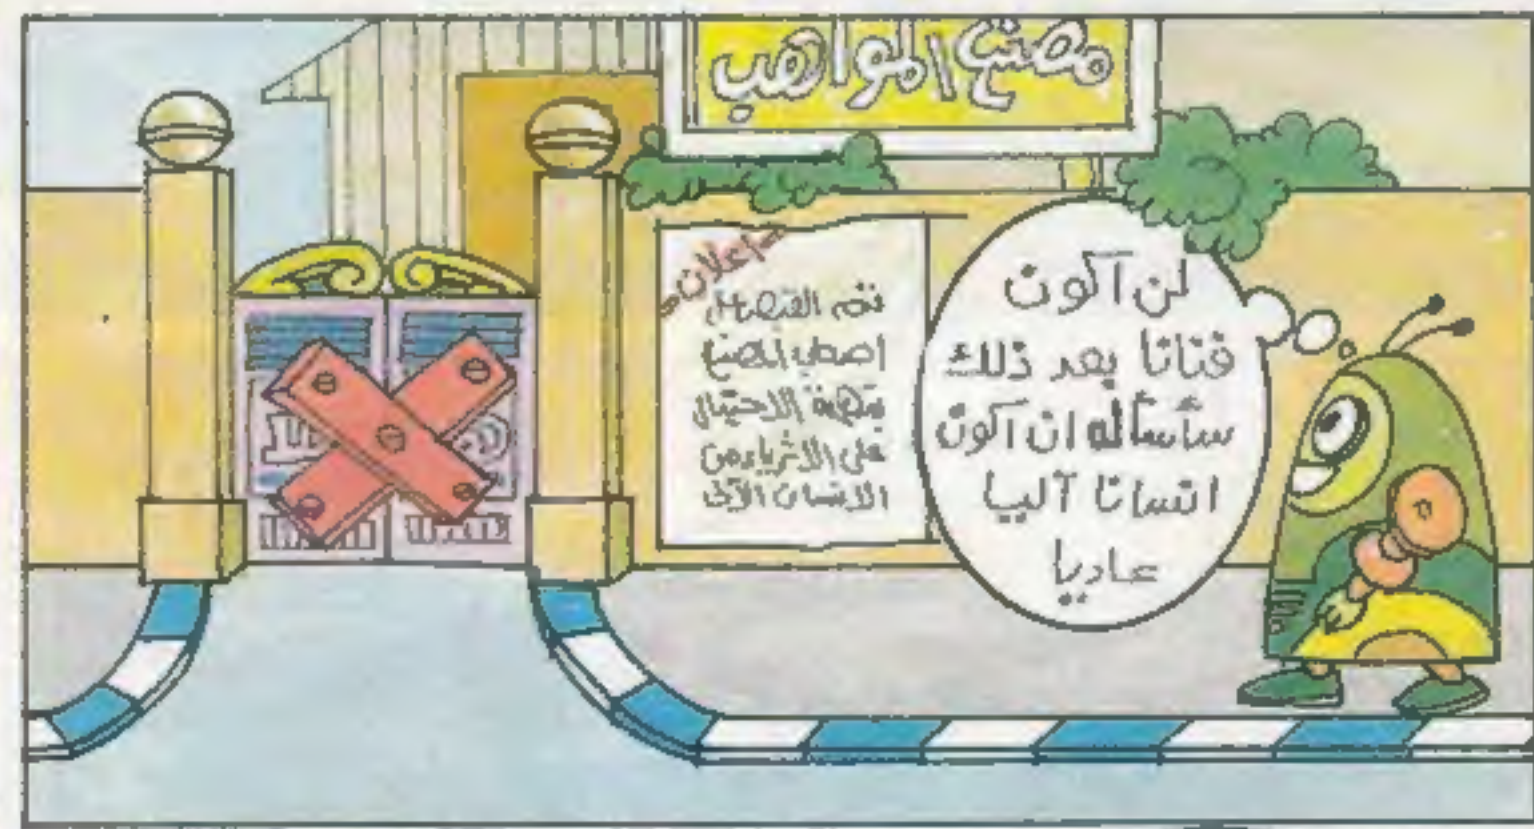 مصنع المواهب
اعلان
تم القبض على
اصحاب المصنع
بتهمة الاحتيال
على الاثرياء من
الانسان الآلى
لن آكون
فنانا بعد ذلك
سأسأله ان آكون
انسانا آليا
عاديا